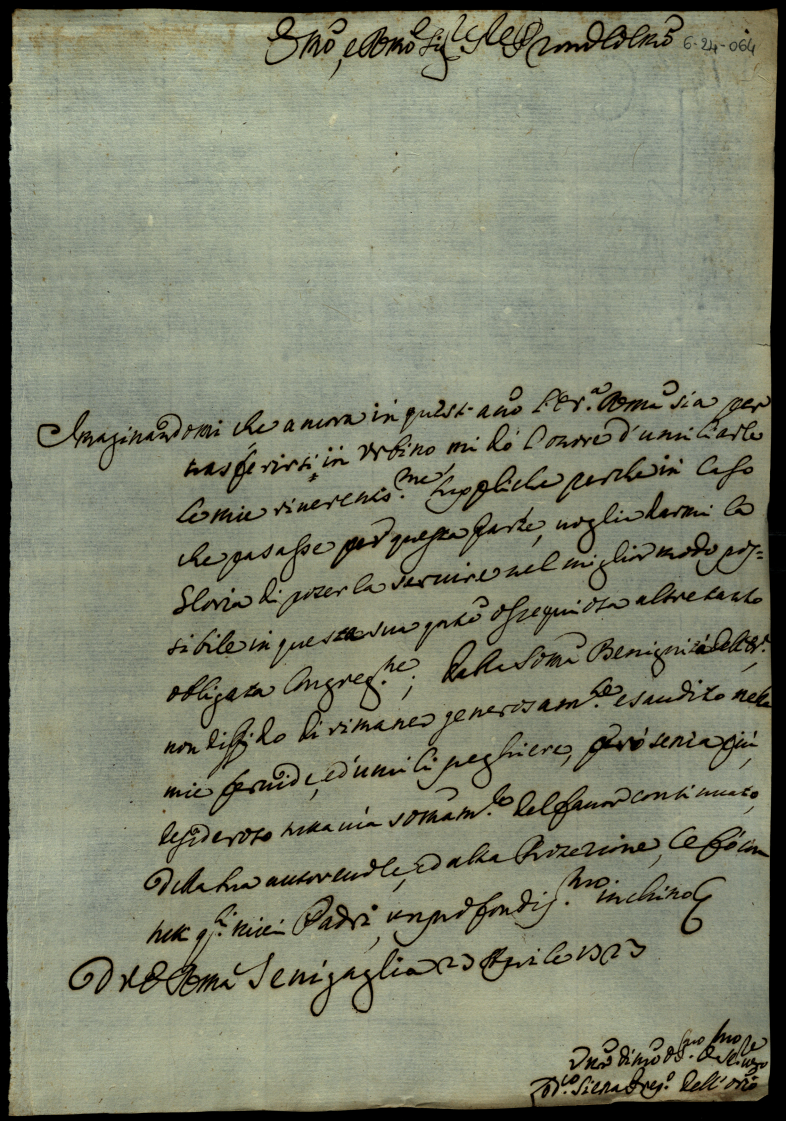 Emo, e Rmo Sigre Sigre Pron Colmo 6-24-064
Imaginandomi che ancora in quest'ano l'E.V.a Rma sia per
trasferirsi in Urbino mi dò l'onore d'umiliarle
le mie riverentis.me suppliche perche in caso
che pasasse per questa parte, voglia darmi la
Gloria di poterla servire nel miglior modo pos=
sibile in questa sua osequiosa altretanto
obligata Congreg.ne; dalla Soma Benignità dell'E.V.
non diffido di rimaner generosam.te esaudito nelle
mie fervide, ed umili preghiere, però senza più,
desideroso tuttavia somam.te del favor continuato,
della sua autorevole, ed alta Protezione, le fò con
tutti q.sti miei Padri, un profondis.mo inchino
D V E Rma Senigaglia 23 Aprile 1723
Umo dimo
dell'Orio